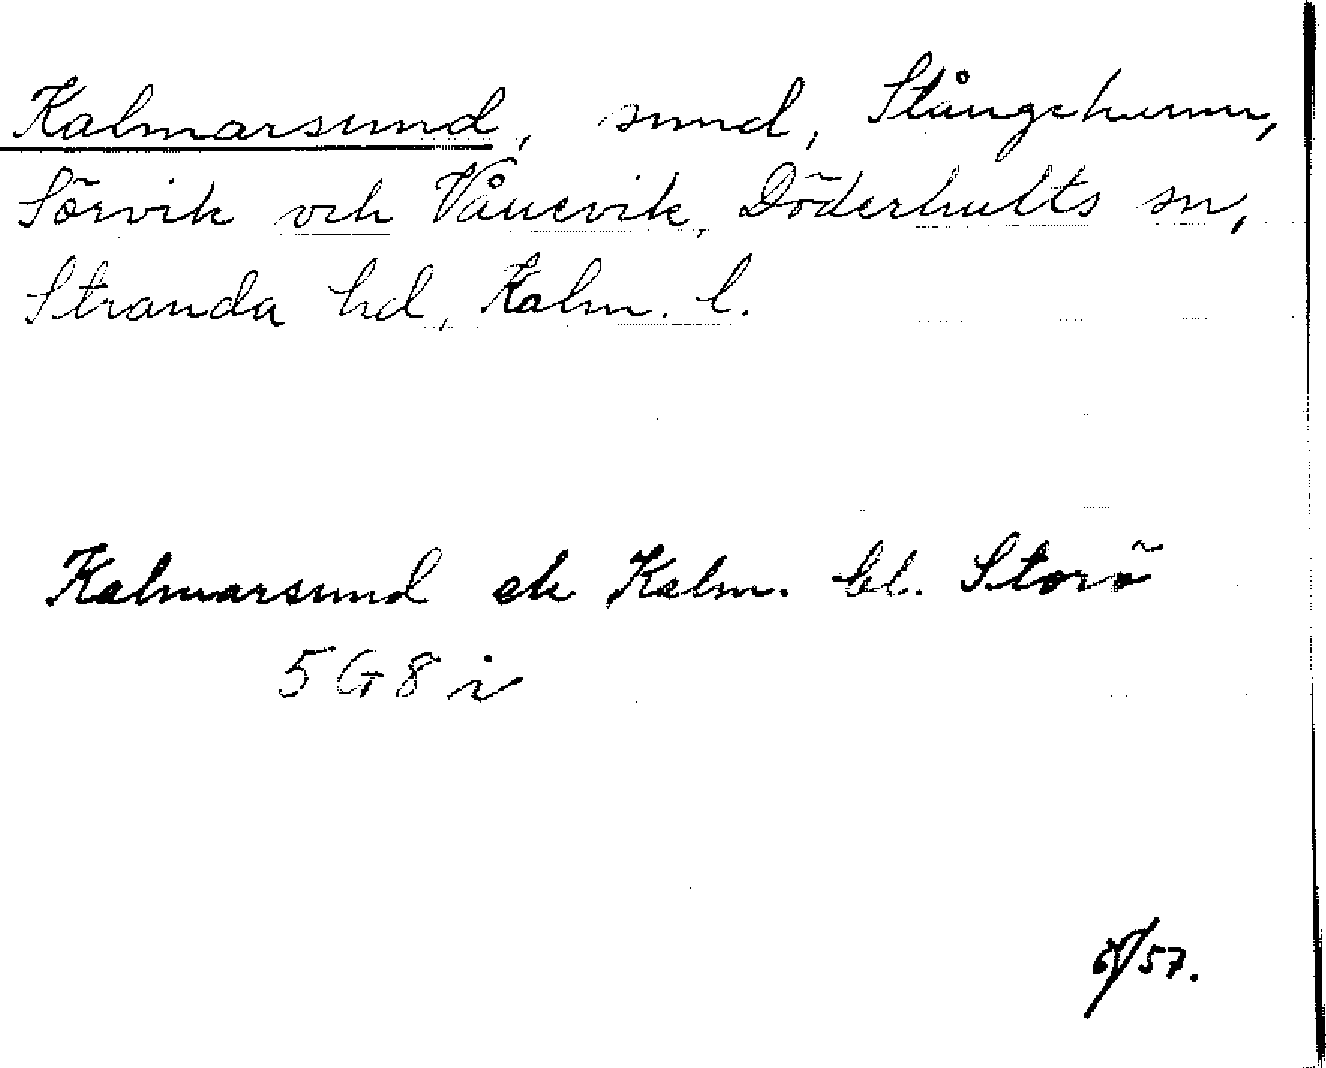 Kalmarsund, sund, Stångehamn,
Sörvik och Vånevik, Döderhults sn,
Stranda hd, Kalm. l.
Kalmarsund ek Kalm. bl. Storö
5 G 8 i
/57.